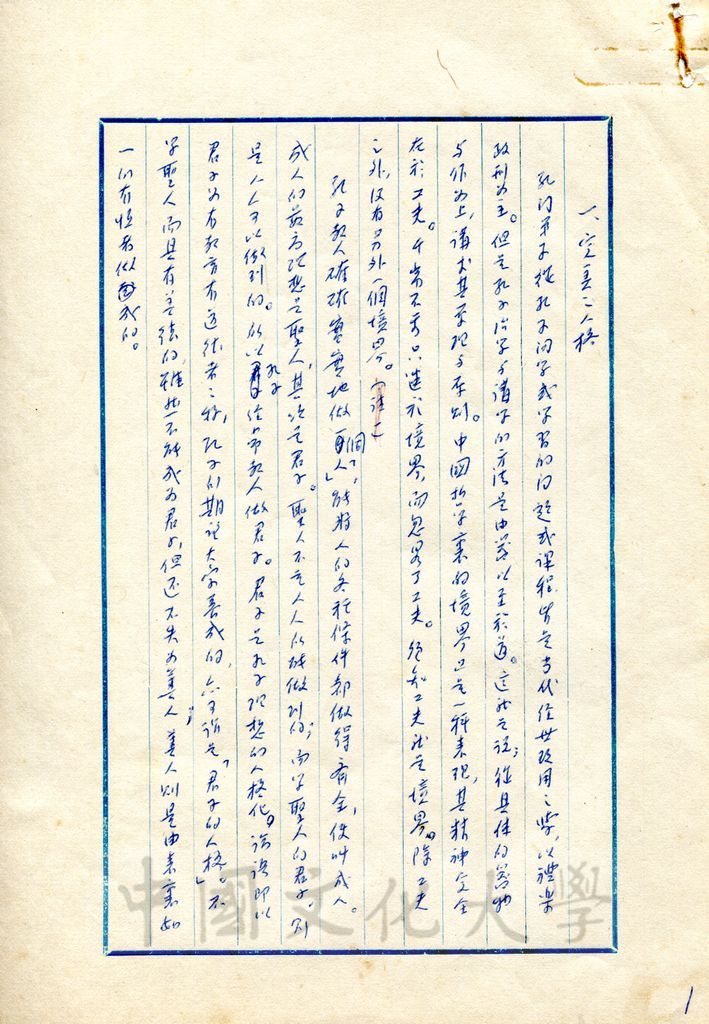 一、完美之人格
孔門弟子從孔子問學或學習的問題或課程皆是當代經世致用之學,以禮樂
政刑為主。但是孔子治學與講學的方法是由器以至於道。這就是說;從具體的器物
與作為上,講求其原理與原則。中國哲學裏的境界只是一種表現,其精神完全
在於工夫。千萬不要只進於境界,而忽略了工夫。須知工夫就是境界,除工夫
之外,沒有另外一個境界。(註一
孔子教人確確實實地做個「人」,能將人的各種條件都做得齊全,便叫成人。
成人的最高理想是聖人,其次是君子。聖人不是人人所能做到的;而學聖人的君子,則
是人人可以做到的。所以孔子經常教人做君子。君子是孔子理想的人格化。論語即以
君子為有教育有道德者之稱,孔子們期望大學養成的,亦可說是「君子的人格。」不
學聖人而具有善德的,雖然不能成為君子,但還不失為善人;善人則是由表裏如
一的有恆者做成的。
中國文化大學
1